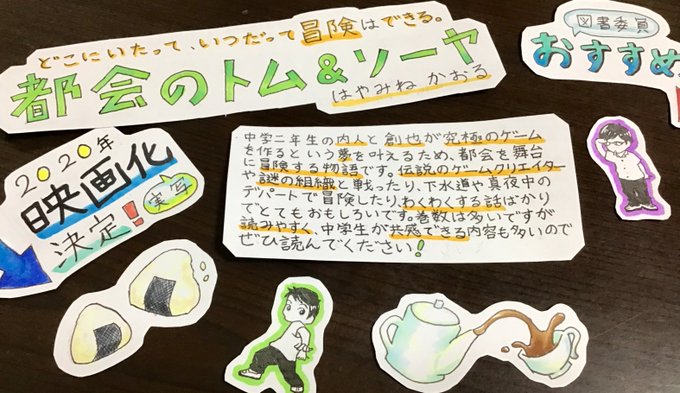 どこにいたって、いつだって冒険はできる。
都会のトム&ソーヤ
はやみね かおる
図書委員
おすすめ
2020年
映画化
実写
決定!
中学二年生の内人と創也が究極のゲーム
を作るという夢を叶えるため、都会を舞台
に冒険する物語です。伝説のゲームクリエイター
や謎の組織と戦ったり、下水道や真夜中の
デパートで冒険したり、わくわくする話ばかり
でとてもおもしろいです。巻数は多いですが
読みやすく、中学生が共感できる内容も多いので
ぜひ読んでください!